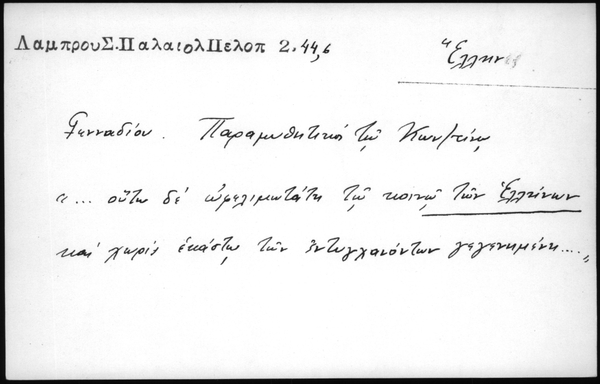 ΛαμπρουΣ.ΠαλαιολΠελοπ 2.44,6
Ἕλλην
Γενναδίου. Παραμυθητικὸς τῷ Κων/τίνῳ
«... οὕτω δὲ ὠφελιμωτάτη τῷ κοινῷ τῶν Ἑλλήνων
καὶ χωρὶς ἑκάστῳ τῶν ἐντυγχανόντων γεγενημένη....»